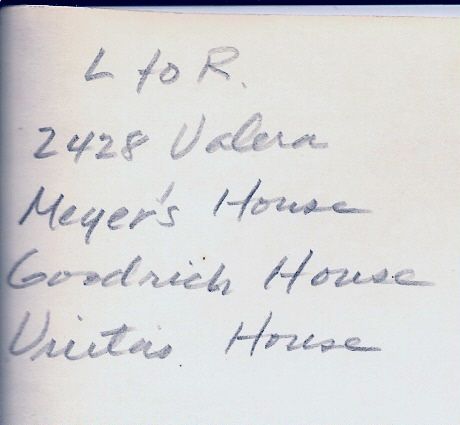 L to R.
2428 Valera
Meyer's House
Goodrich House
House